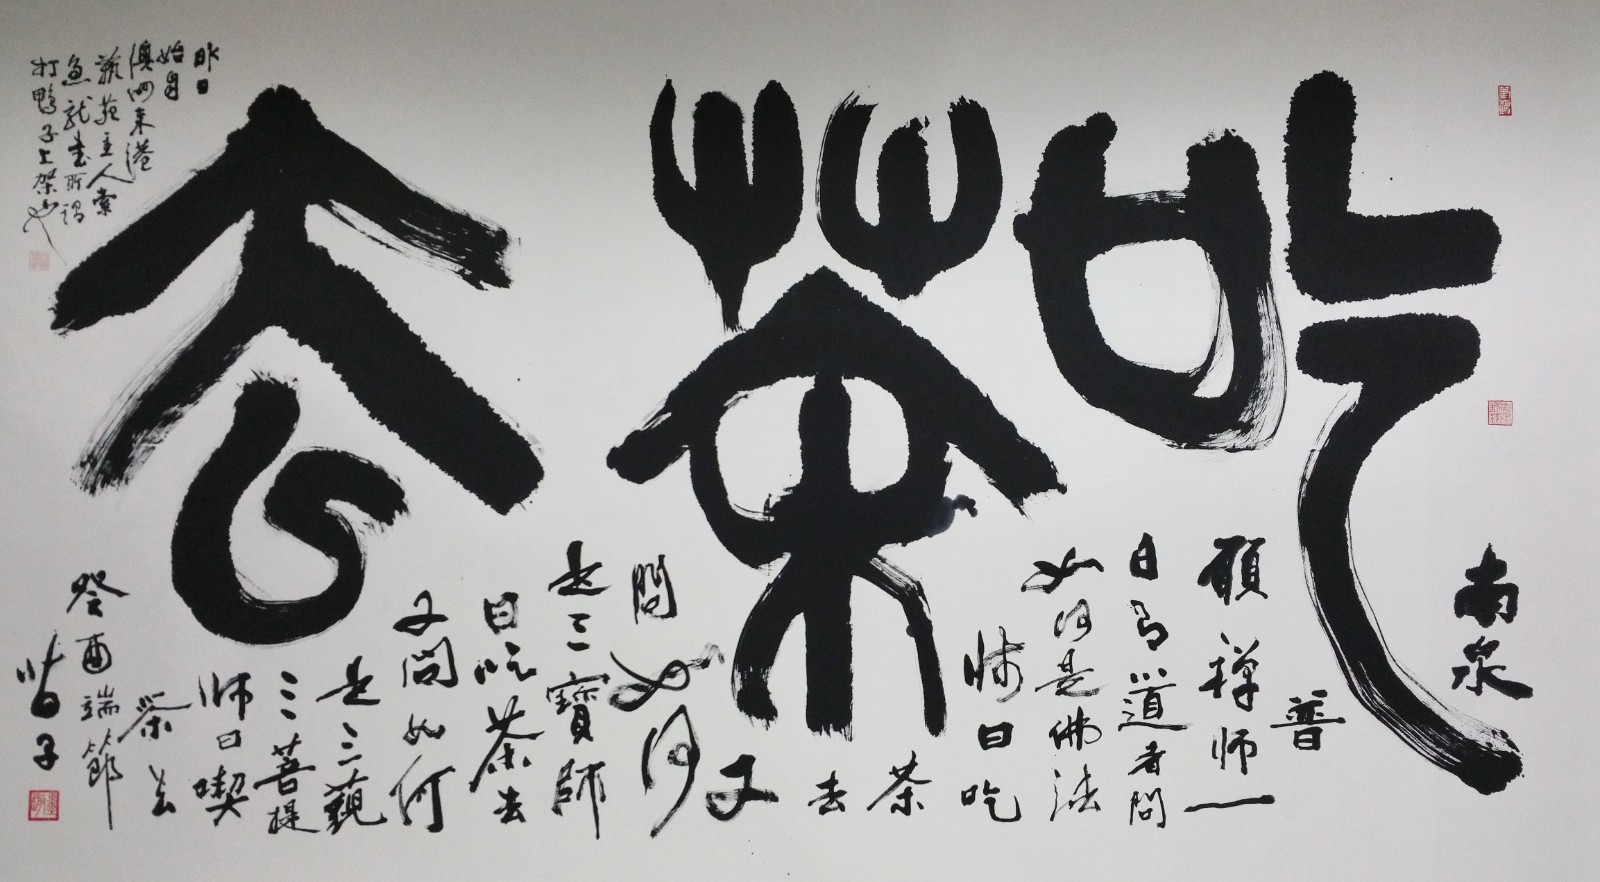 吃茶去
南泉
普
願禪师一
日有道者問
如何是佛法
师曰吃
茶
去
又
問如何
是三寶師
曰吃茶去
又問如何
是三藐
三菩提
师曰喫
茶去
癸酉端節
昨日
始自
澳洲来港
主人索
魚龍書所謂
打鴨子上架也